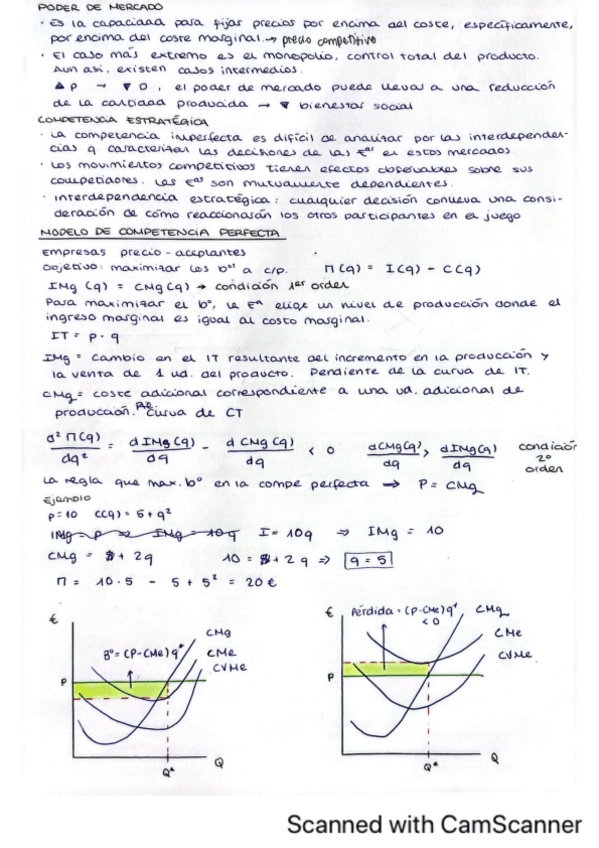 PODER DE MERCADO
· Es la capacidad para fijar precios por encima del coste, específicamente,
por encima del coste marginal. → precio competitivo
· El caso más extremo es el monopolio, control total del producto.
Aun así, existen casos intermedios.
▲ P → ▼ D, el poder de mercado puede llevar a una reducción
de la cantidad producida → ▼ bienestar social
COMPETENCIA ESTRATÉGICA
· La competencia imperfecta es difícil de analizar por las interdependen-
cias q caracterizan las decisiones de las Eªs en estos mercados
· Los movimientos competitivos tienen efectos observables sobre sus
competidores. Las Eªs son mutuamente dependientes.
· Interdependencia estratégica: cualquier decisión conlleva una consi-
deración de cómo reaccionarán los otros participantes en el juego
MODELO DE COMPETENCIA PERFECTA
Empresas precio-aceptantes
Objetivo: maximizar los bos a c/p. Π(q) = I(q) - C(q)
IMg (q) = CMg(q) → condición 1er orden
Para maximizar el bº, la Eª elige un nivel de producción donde el
ingreso marginal es igual al costo marginal.
IT = p · q
IMg = cambio en el IT resultante del incremento en la producción y
la venta de 1 ud. del producto. Pendiente de la curva de IT.
CMg = coste adicional correspondiente a una ud. adicional de
producción. curva de CT
d²Π(q)/dq² = dIMg(q)/dq - dCMg(q)/dq < 0 dCMg(q)/dq > dIMg(q)/dq condición 2º orden
La regla que max. bº en la compe perfecta → P = CMg
Ejemplo
p=10 C(q) = 5+q²
IMg = p ⇒ IMg = 10q I = 10q ⇒ IMg = 10
CMg = + 2q 10 = + 2q ⇒ q = 5
Π = 10·5 - 5 + 5² = 20 €
€
Bº = (P-CMe)q*
CMg
CMe
CVMe
P
Q*
Q
€
Pérdida = (P-CMe)q*
< 0
CMg
CMe
CVMe
P
Q*
Q
Scanned with CamScanner